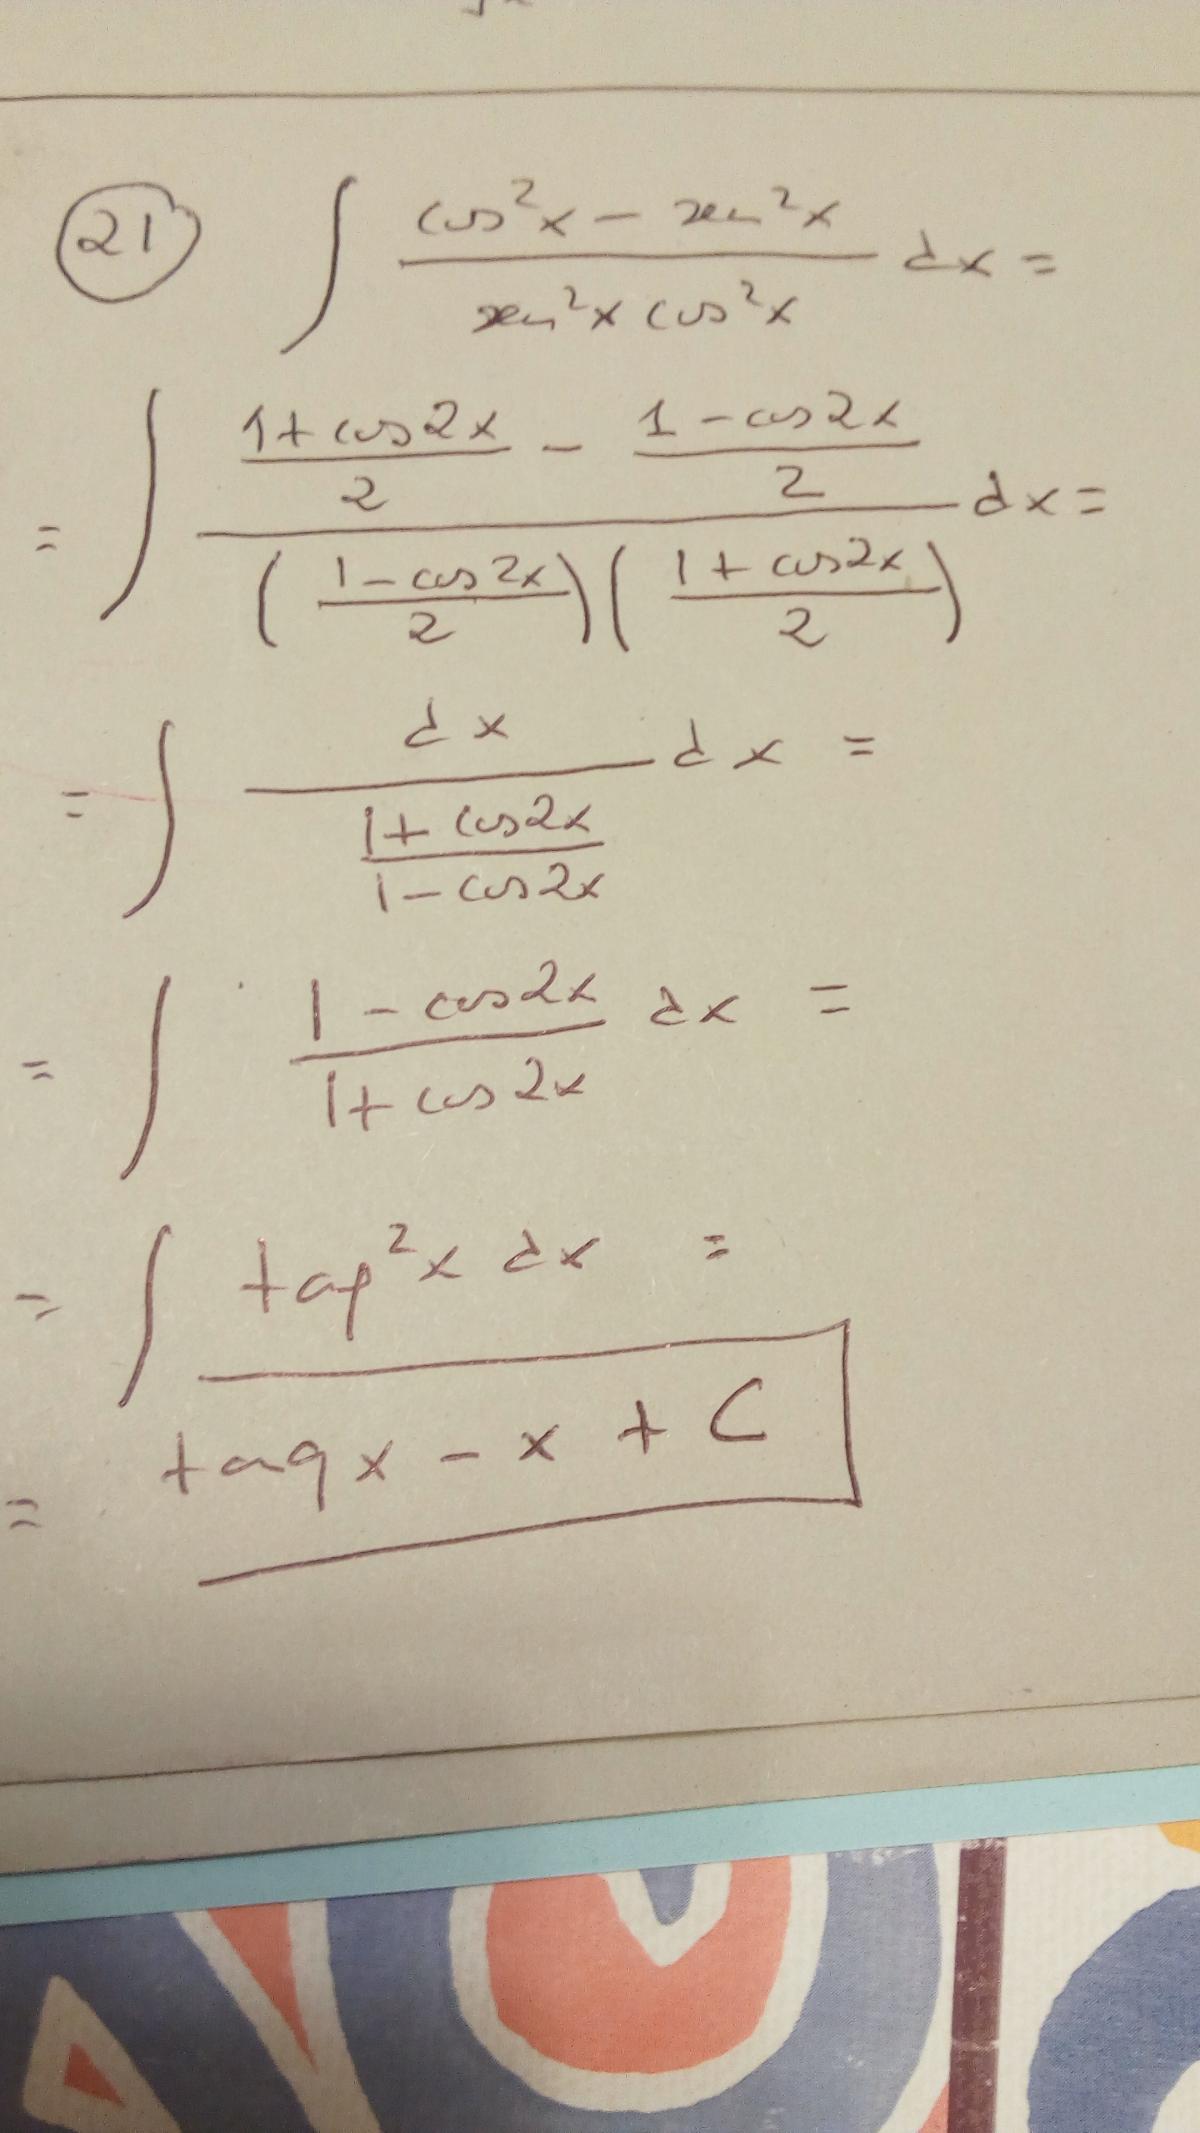 21 ∫ (cos²x − sen²x)/(sen²x cos²x) dx =
= ∫ ((1+cos2x)/2 − (1−cos2x)/2)/(((1−cos2x)/2)((1+cos2x)/2)) dx =
= ∫ dx/((1+cos2x)/(1−cos2x)) dx =
= ∫ (1−cos2x)/(1+cos2x) dx =
= ∫ tag²x dx =
= tagx − x + C